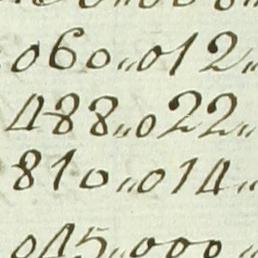 060,,012,,
488,,022,,
810,,014,,
045,,000,,